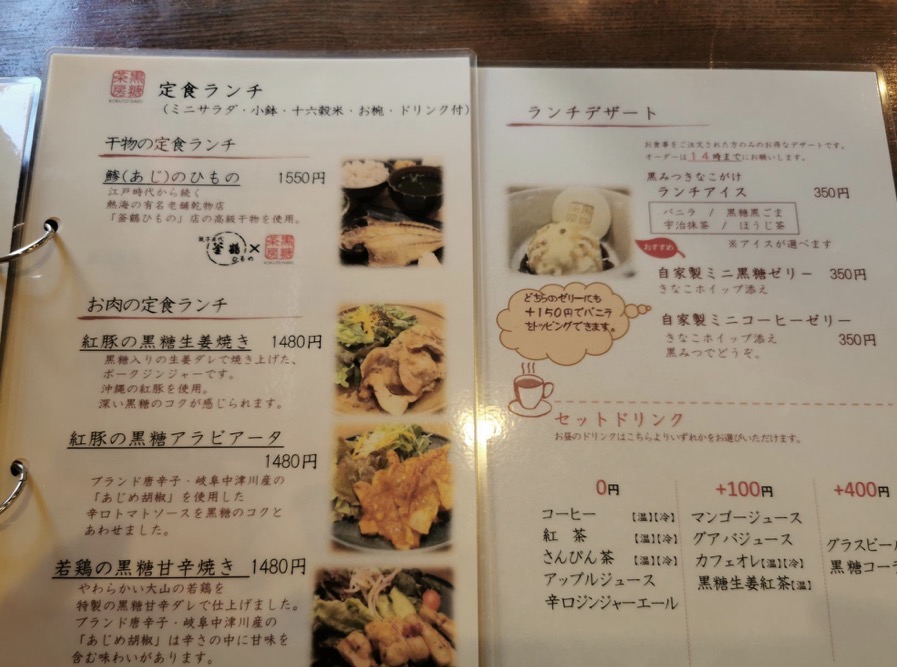 黒糖茶房
KOKUTO SABO
定食ランチ
（ミニサラダ・小鉢・十六穀米・お椀・ドリンク付）
干物の定食ランチ
鯵(あじ)のひもの 1550円
江戸時代から続く
熱海の有名老舗乾物店
「釜鶴ひもの」店の高級干物を使用。
釜鶴 ひもの × 黒糖茶房
お肉の定食ランチ
紅豚の黒糖生姜焼き 1480円
黒糖入りの生姜ダレで焼き上げた、
ポークジンジャーです。
沖縄の紅豚を使用。
深い黒糖のコクが感じられます。
紅豚の黒糖アラビアータ
1480円
ブランド唐辛子・岐阜中津川産の
「あじめ胡椒」を使用した
辛口トマトソースを黒糖のコクと
あわせました。
若鶏の黒糖甘辛焼き 1480円
やわらかい大山の若鶏を
特製の黒糖甘辛ダレで仕上げました。
ブランド唐辛子・岐阜中津川産の
「あじめ胡椒」は辛さの中に甘味を
含む味わいがあります。
ランチデザート
お食事をご注文された方のみのお得なデザートです。
オーダーは14時までにお願いします。
黒みつきなこがけ
ランチアイス 350円
バニラ / 黒糖黒ごま
宇治抹茶 / ほうじ茶
※アイスが選べます
おすすめ
自家製ミニ黒糖ゼリー 350円
きなこホイップ添え
どちらのゼリーにも
+150円でバニラ
をトッピングできます。
自家製ミニコーヒーゼリー
きなこホイップ添え 350円
黒みつでどうぞ。
セットドリンク
お昼のドリンクはこちらよりいずれかをお選びいただけます。
0円
コーヒー 【温】【冷】
紅 茶 【温】【冷】
さんぴん茶 【温】【冷】
アップルジュース
辛口ジンジャーエール
+100円
マンゴージュース
グアバジュース
カフェオレ【温】【冷】
黒糖生姜紅茶【温】
+400円
グラスビール
黒糖コー